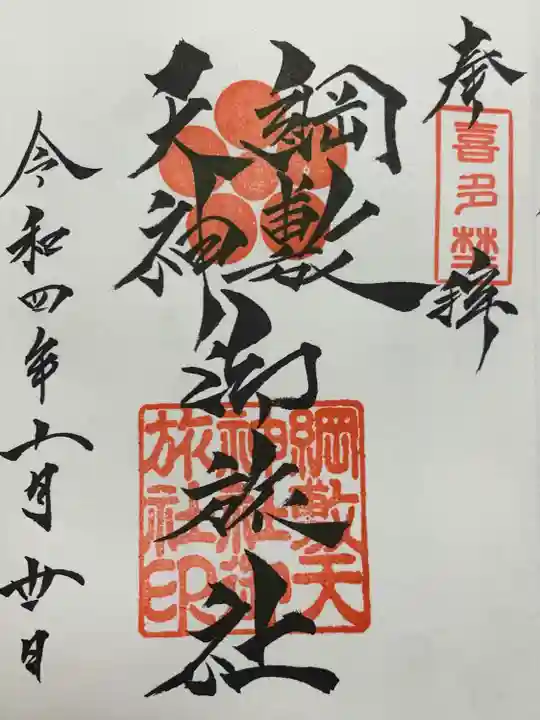 奉拝
喜多埜
綱敷
天神
御旅社
綱敷天
神社御
旅社印
令和四年十一月廿日